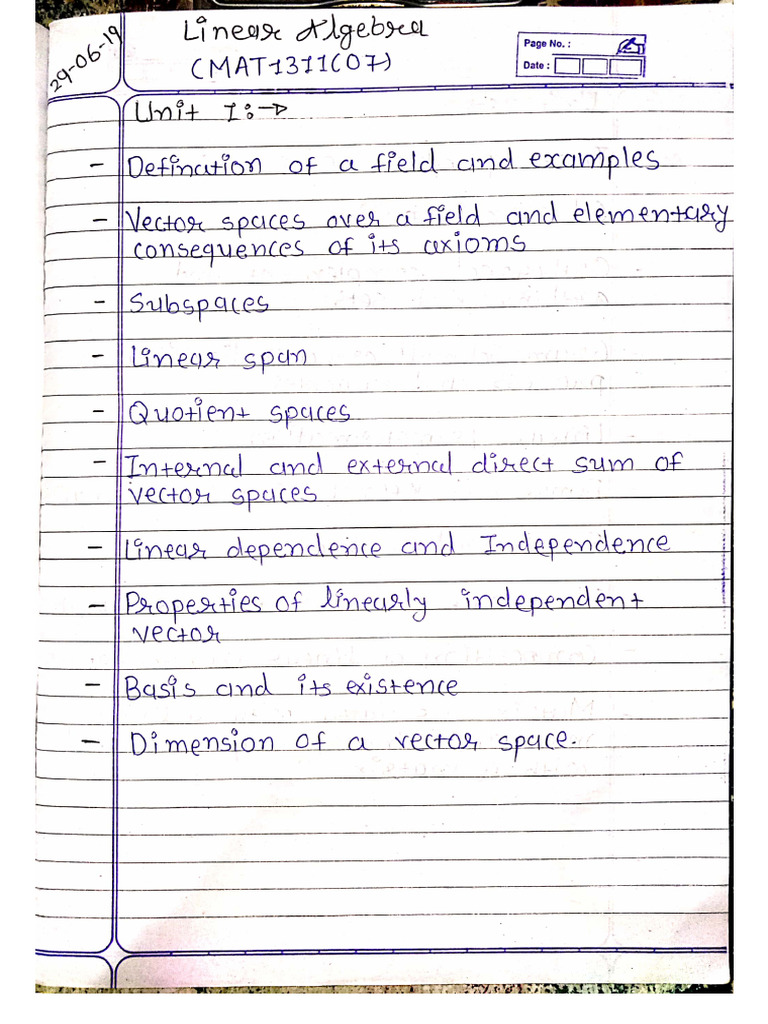 29-06-19
Linear Algebra
(MAT1311C07)
Page No. :
Date :
Unit I :→
- Defination of a field and examples
- Vector spaces over a field and elementary
consequences of its axioms
- Subspaces
- Linear span
- Quotient spaces
- Internal and external direct sum of
vector spaces
- Linear dependence and Independence
- Properties of linearly independent
vector
- Basis and its existence
- Dimension of a vector space.